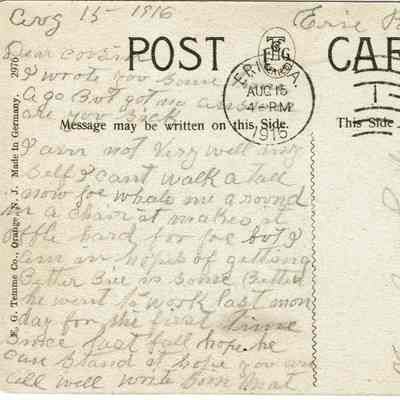 Aug 15 - 1916
Erie Pa
Dear cousin
POST CAR
F E T G
ERIE, PA.
AUG 15
4 - PM
1916
1
I wrote you some
a go But got no answer
are you Sick
Message may be written on this Side.
This Side
I am not Very well my
Self I cant walk a tall
now foe whals me a round
in a chair at makes it
hard for foe but I
am in hopes of getting
Better Bil is some Better
he went to work last mon
day for the first time
Since last fall hope he
can stand it hope you are
all well write soon that
E. G. Temme Co., Orange, N. J. Made in Germany. 2976